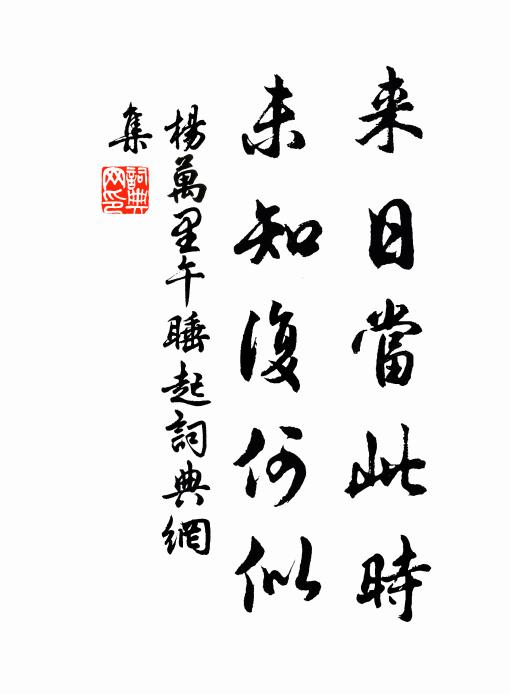 来日當此時
未知復何似
楊萬里午睡起詞典網
集
詞典
网印